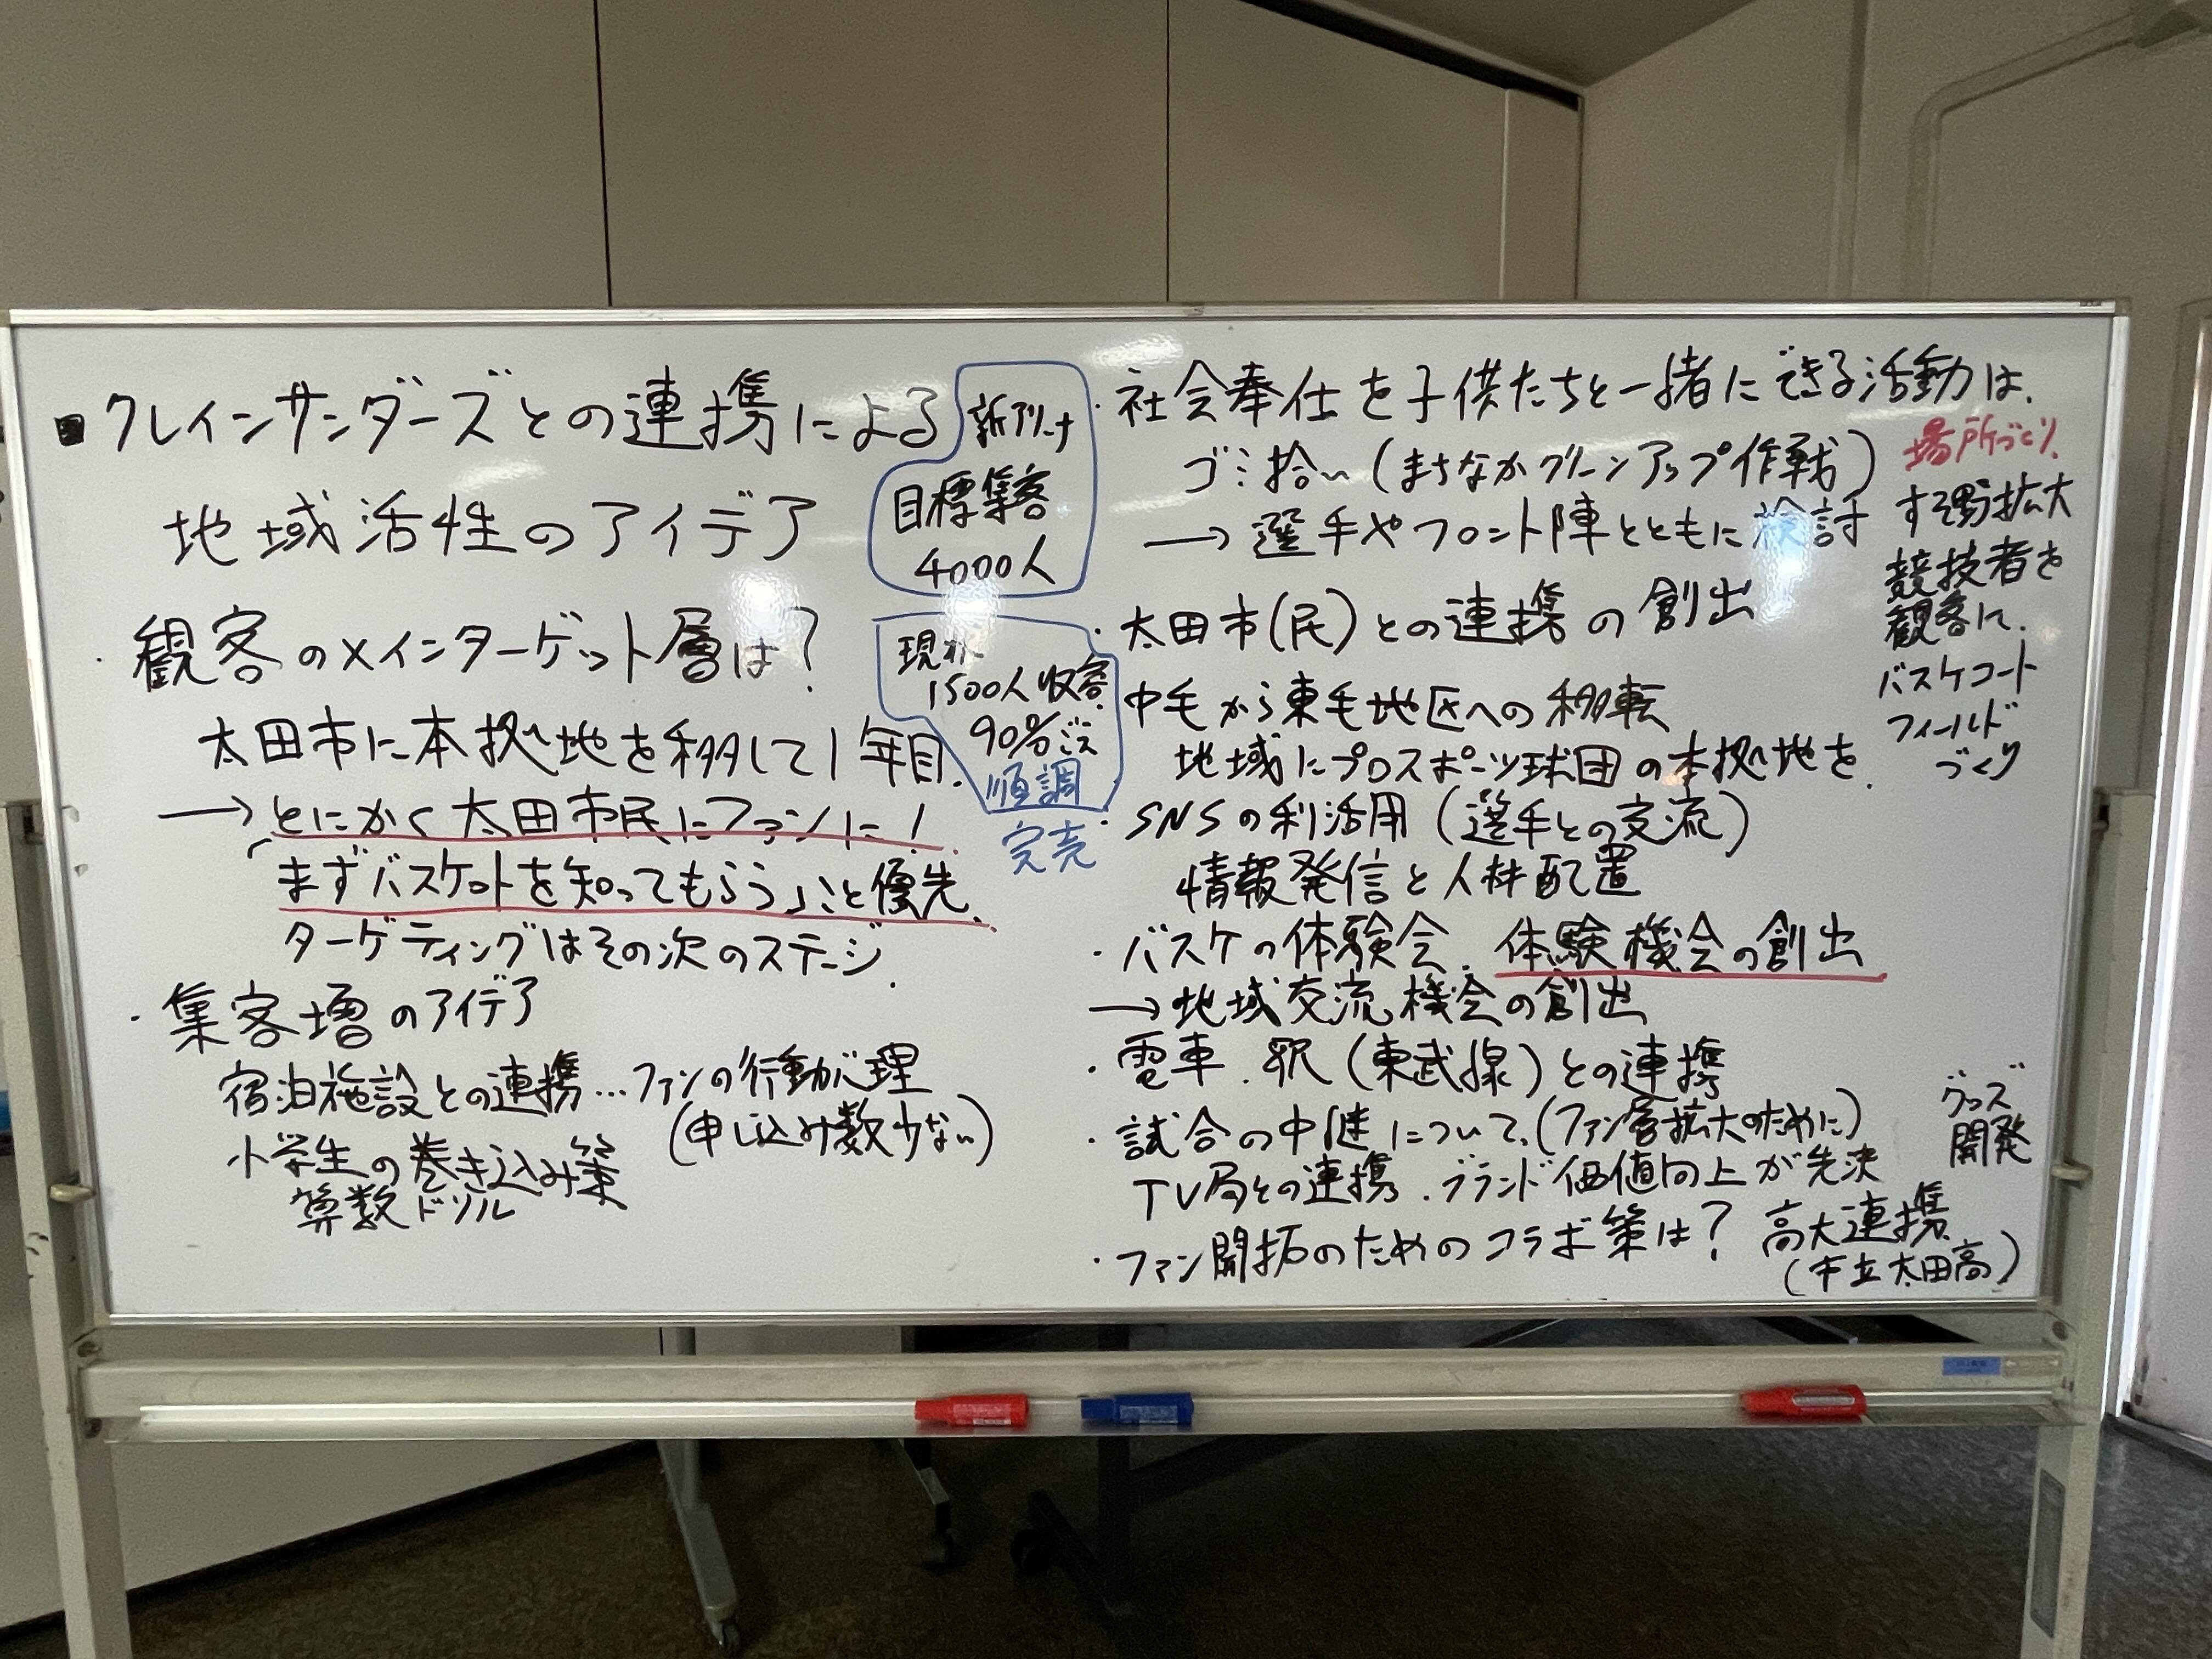 ■クレインサンダーズとの連携による
地域活性のアイデア
・観客のメインターゲット層は?
太田市に本拠地を移して1年目.
→とにかく太田市民にファンに!
「まずバスケットを知ってもらう」こと優先.
ターゲティングはその次のステージ.
・集客増のアイデア
宿泊施設との連携…ファンの行動心理
(申し込み数少ない)
小学生の巻き込み策
算数ドリル
新アリーナ
目標集客
4000人
現れ
1500人収客
90%ごえ
順調
完売
・社会奉仕を子供たちと一緒にできる活動は.
ゴミ拾い(まちなかクリーンアップ作戦)
→選手やフロント陣とともに検討
・太田市(民)との連携の創出
中毛から東毛地区への移転
地域にプロスポーツ球団の本拠地を.
・SNSの利活用(選手との交流)
情報発信と人材配置
・バスケの体験会.体験機会の創出
→地域交流機会の創出
・電車.駅(東武線)との連携
・試合の中継について.(ファン層拡大のために)
TV局との連携.ブランド価値向上が先決
・ファン開拓のためのコラボ策は?
場所づくり
すそ野拡大
競技者を
観客に.
バスケコート
フィールド
づくり
グッズ
開発
高大連携
(市立太田高)